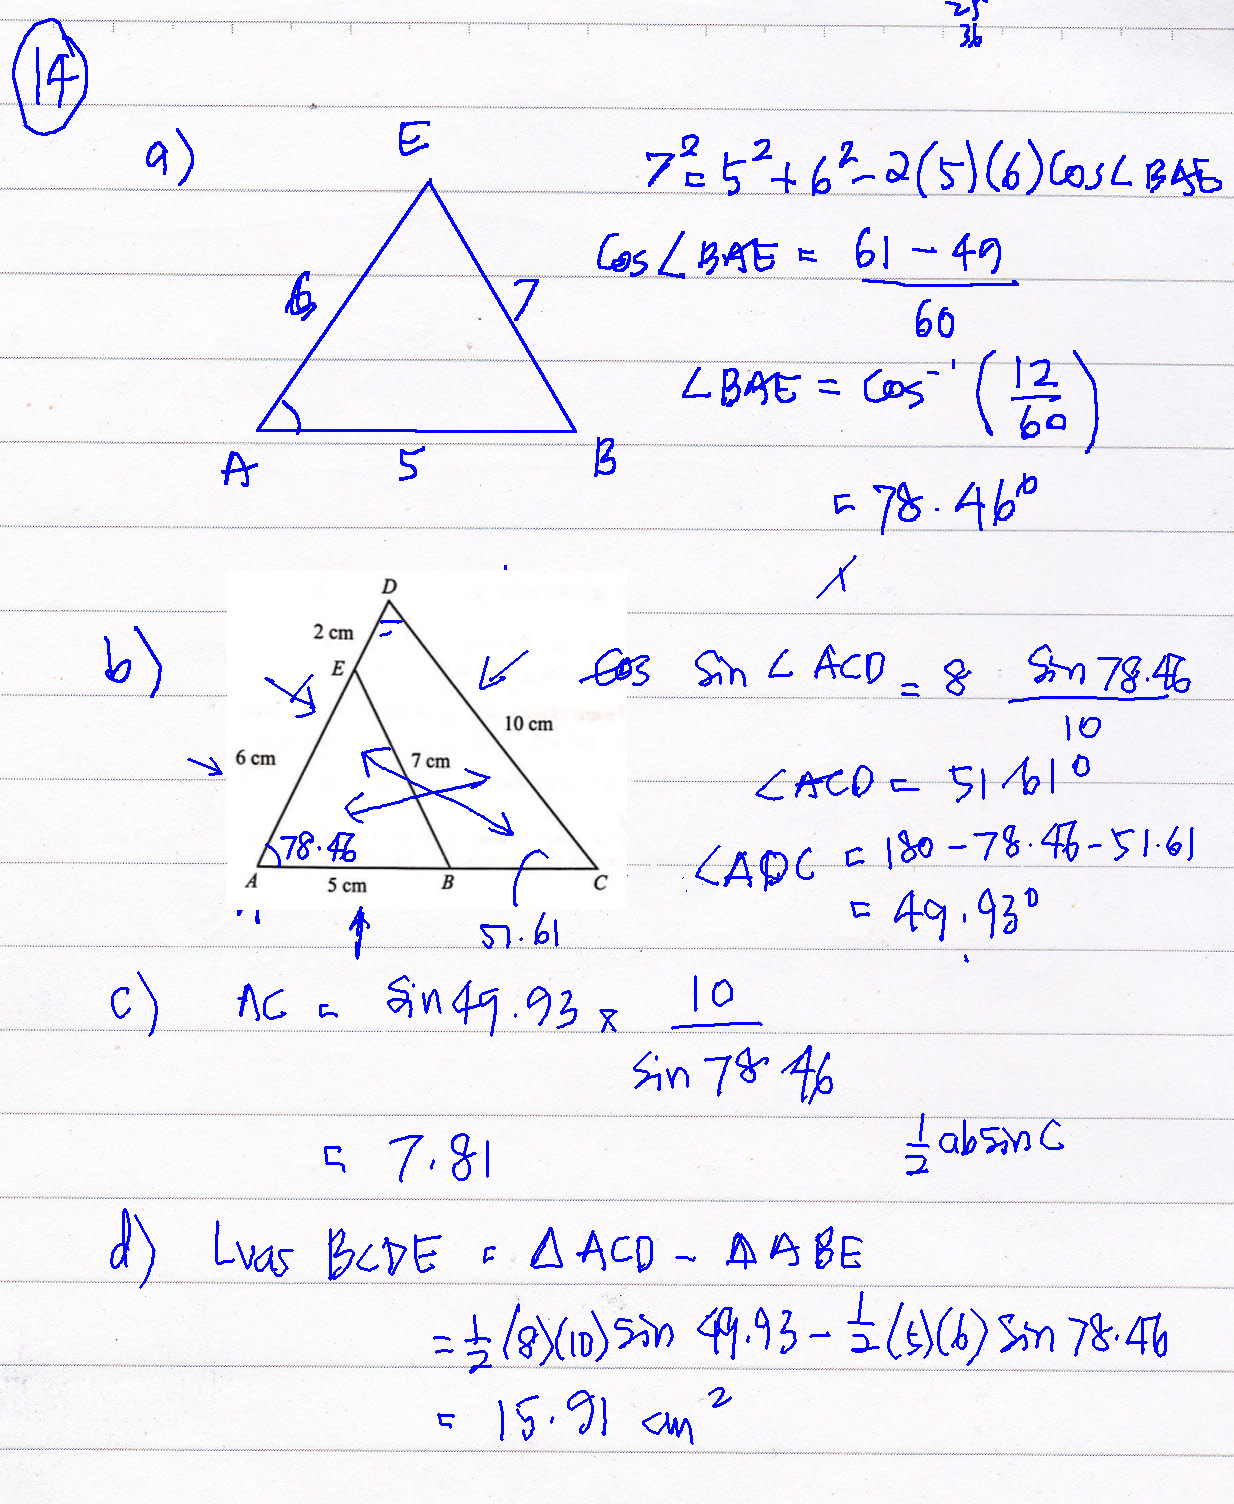 25
36
14
a)
E
6
7
A
5
B
7² = 5² + 6² - 2(5)(6) Cos∠BAE
Cos∠BAE = 61 - 49
60
∠BAE = Cos⁻¹ (12/60)
= 78.46°
b)
D
2 cm
E
10 cm
6 cm
7 cm
78.46
A
5 cm
B
C
51.61
Cos Sin ∠ACD = 8 Sin 78.46
10
∠ACD = 51.61°
∠ADC = 180 - 78.46 - 51.61
= 49.93°
c) AC = Sin 49.93 × 10
Sin 78.46
= 7.81
½ ab Sin C
d) Luas BCDE = Δ ACD - Δ ABE
= ½ (8)(10) Sin 49.93 - ½ (5)(6) Sin 78.46
= 15.91 cm²